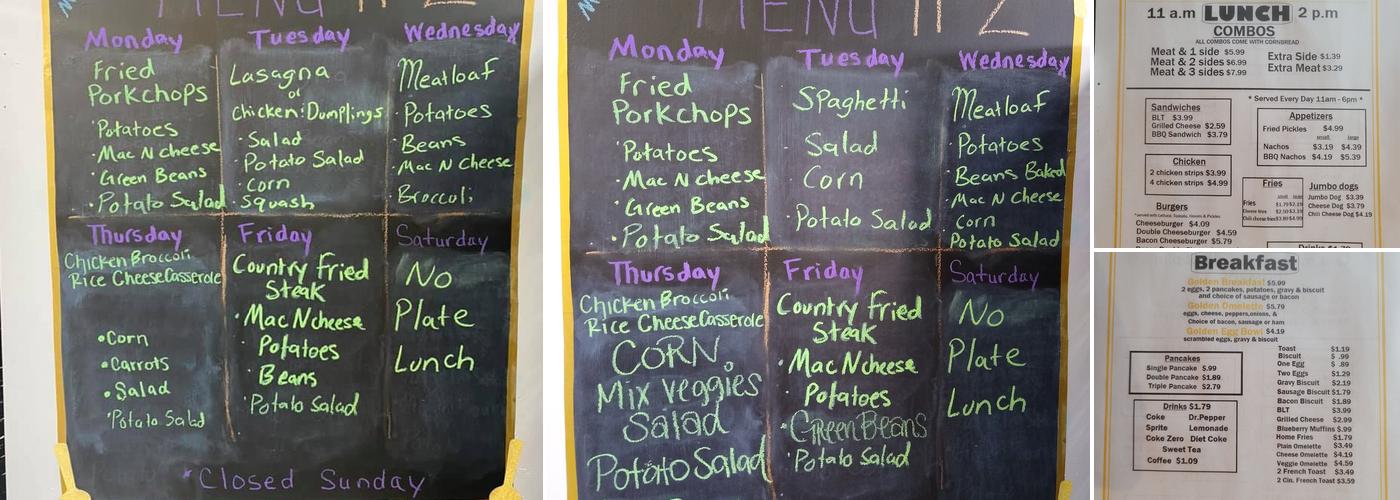 MENU
Monday
Fried
Porkchops
Potatoes
Mac N cheese
Green Beans
Potato Salad
Tuesday
Lasagna
or
Chicken : Dumplings
Salad
Potato Salad
Corn
Squash
Wednesday
Meatloaf
Potatoes
Beans
Mac N Cheese
Broccoli
Thursday
Chicken Broccoli
Rice Cheese Casserole
Corn
Carrots
Salad
Potato Salad
Friday
Country fried
Steak
Mac N cheese
Potatoes
Beans
Potato Salad
Saturday
No
Plate
Lunch
*Closed Sunday
MENU #2
Monday
Fried
Porkchops
Potatoes
Mac N cheese
Green Beans
Potato Salad
Tuesday
Spaghetti
Salad
Corn
Potato Salad
Wednesday
Meatloaf
Potatoes
Beans Baked
Mac N Cheese
Corn
Potato Salad
Thursday
Chicken Broccoli
Rice Cheese Casserole
CORN
Mix veggies
Salad
Potato Salad
Friday
Country fried
Steak
Mac N cheese
Potatoes
Green Beans
Potato Salad
Saturday
No
Plate
Lunch
11 a.m LUNCH 2 p.m
COMBOS
ALL COMBOS COME WITH CORNBREAD
Meat & 1 side $5.99
Meat & 2 sides $6.99
Meat & 3 sides $7.99
Extra Side $1.39
Extra Meat $3.29
* Served Every Day 11am - 6pm *
Sandwiches
BLT $3.99
Grilled Cheese $2.59
BBQ Sandwich $3.79
Appetizers
Fried Pickles $4.99
small large
Nachos $3.19 $4.39
BBQ Nachos $4.19 $5.39
Chicken
2 chicken strips $3.99
4 chicken strips $4.99
Fries
Fries
Cheese fries
Chili cheese fries
Jumbo dogs
Jumbo Dog $3.39
Cheese Dog $3.79
Chili Cheese Dog $4.19
Burgers
*served with Lettuce, Tomato, Onions & Pickles
Cheeseburger $4.09
Double Cheeseburger $4.59
Bacon Cheeseburger $5.79
Breakfast
Golden Breakfast $5.99
2 eggs, 2 pancakes, potatoes, gravy & biscuit
and choice of sausage or bacon
Golden Omelette $5.79
eggs, cheese, peppers,onions, &
Choice of bacon, sausage or ham
Golden Egg Bowl $4.19
scrambled eggs, gravy & biscuit
Pancakes
Single Pancake $.99
Double Pancake $1.89
Triple Pancake $2.79
Drinks $1.79
Coke Dr.Pepper
Sprite Lemonade
Coke Zero Diet Coke
Sweet Tea
Coffee $1.09
Toast $1.19
Biscuit $ .99
One Egg $ .89
Two Eggs $1.29
Gravy Biscuit $2.19
Sausage Biscuit $1.79
Bacon Biscuit $1.89
BLT $3.99
Grilled Cheese $2.99
Blueberry Muffins $.99
Home Fries $1.79
Plain Omelette $3.49
Cheese Omelette $4.19
Veggie Omelette $4.59
2 French Toast $3.49
2 Cin. French Toast $3.59